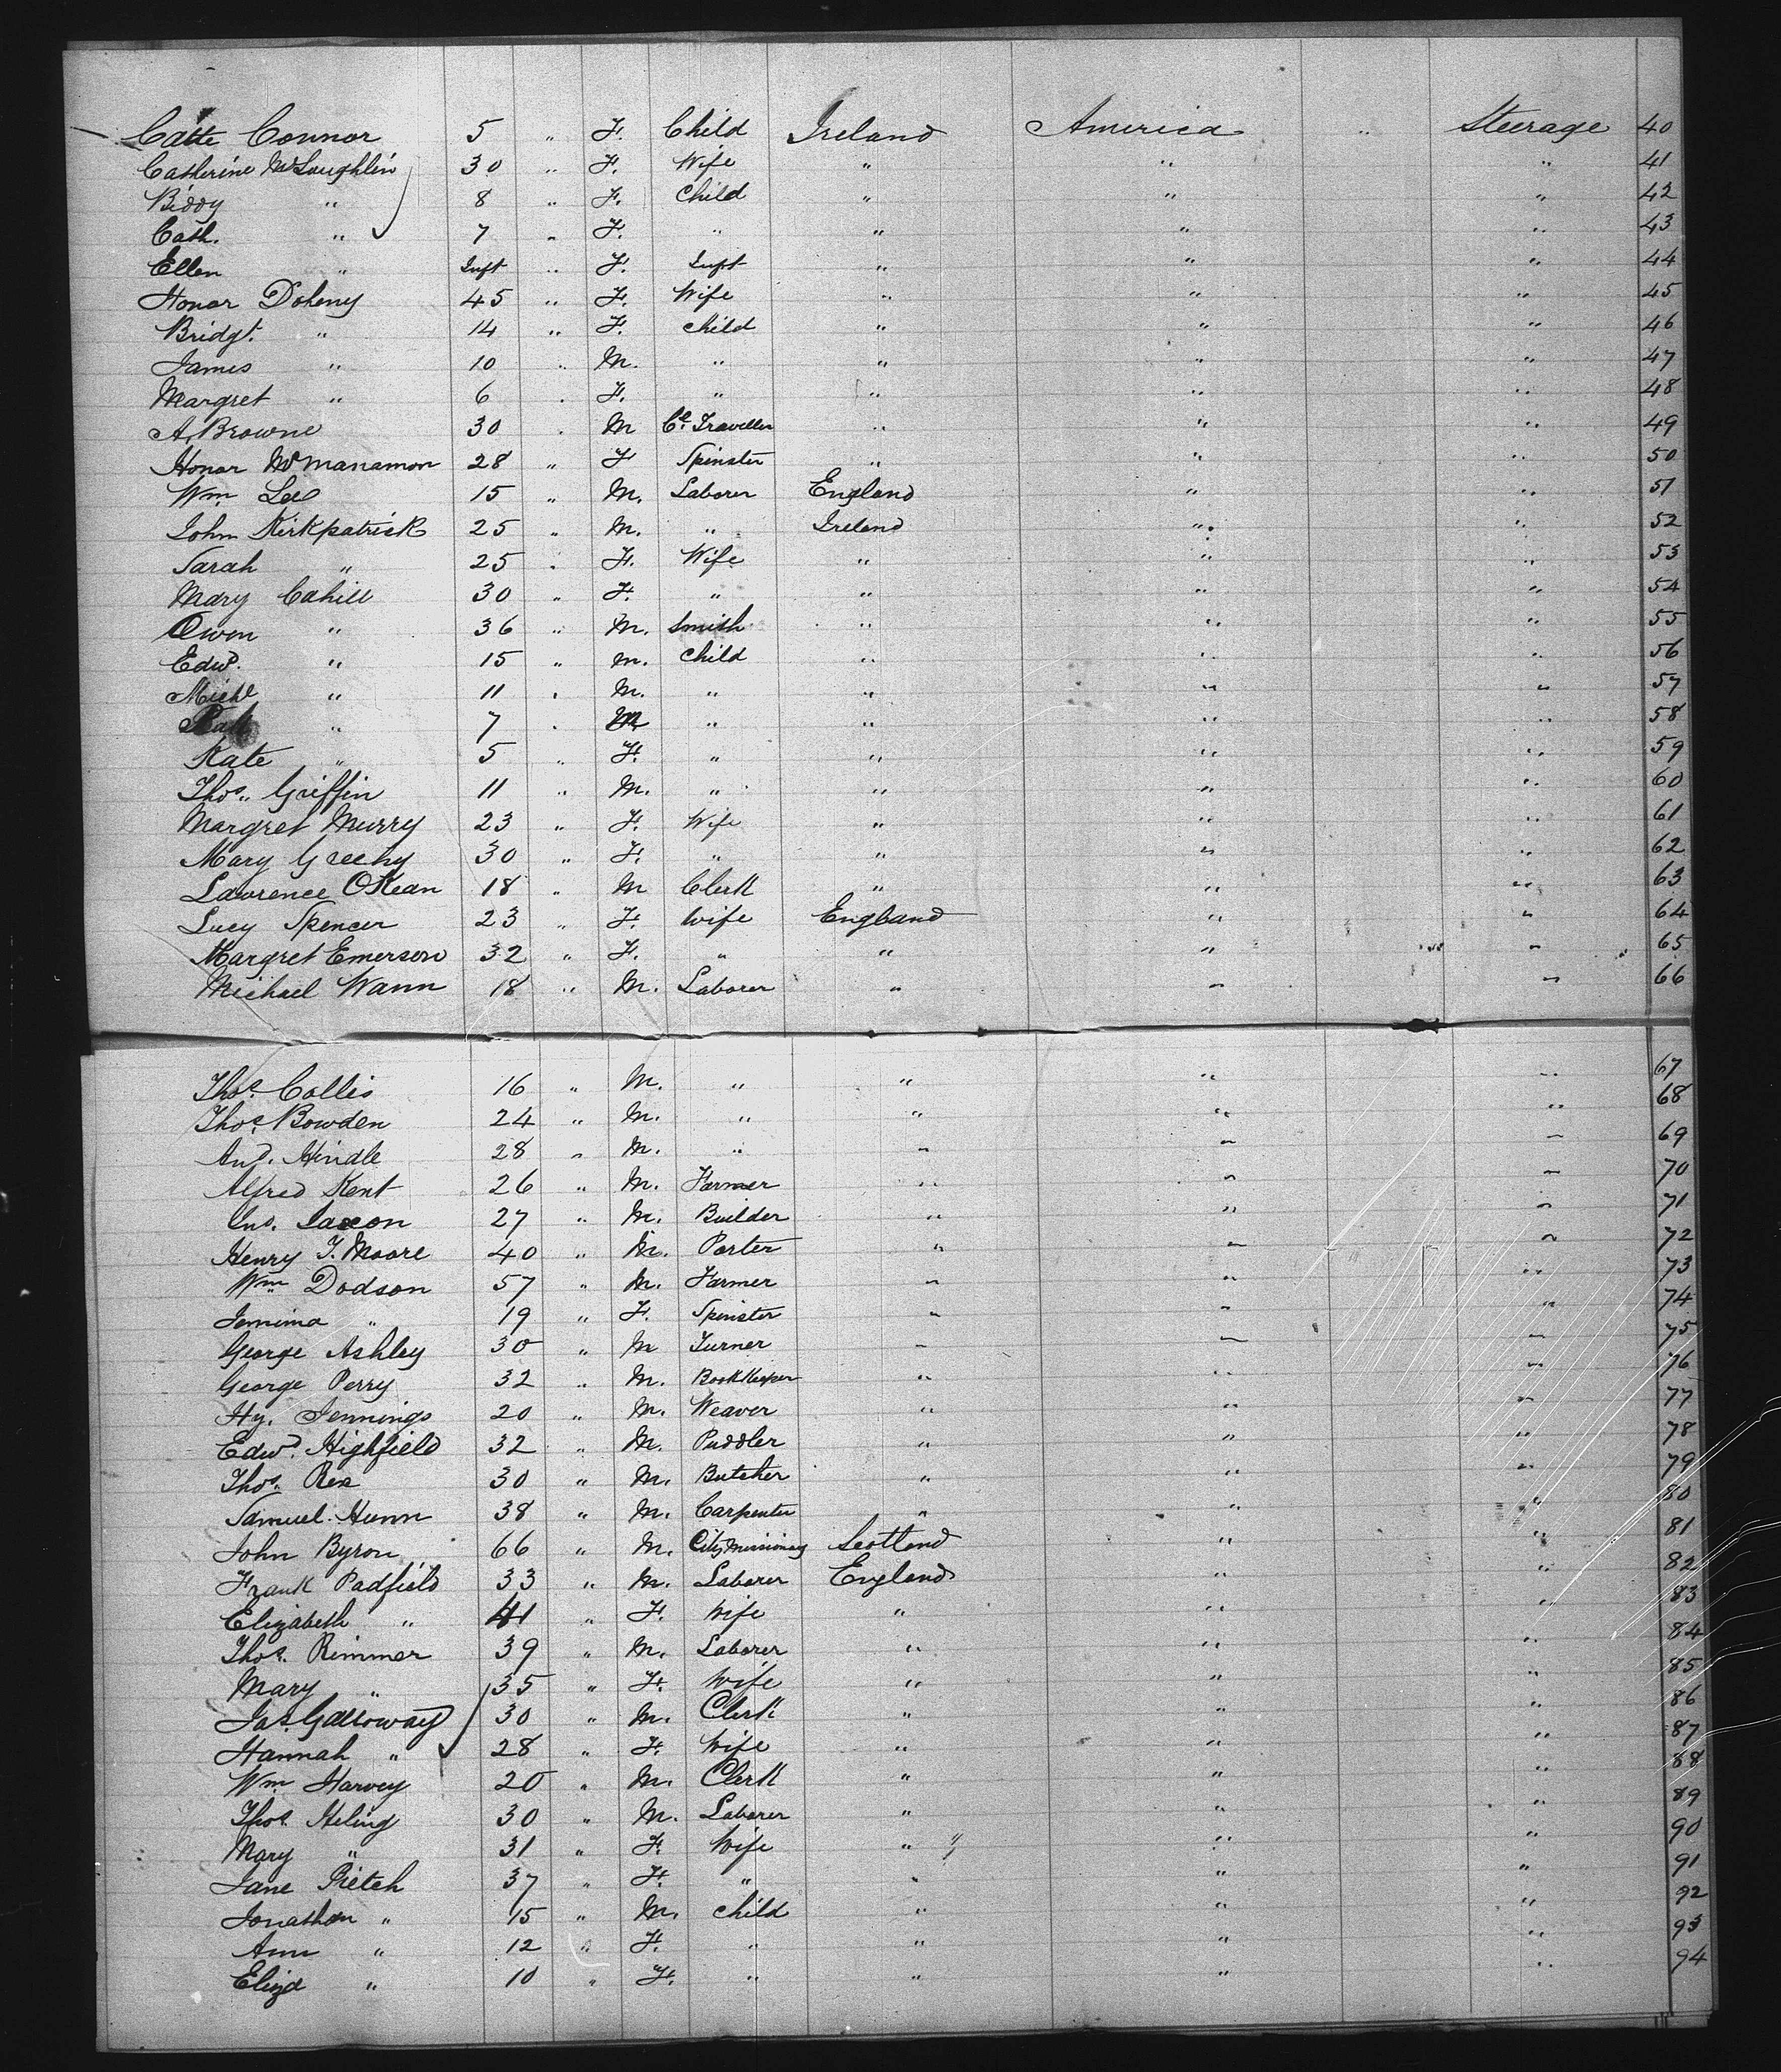 Catte Connor 5 " F. Child Ireland America " Steerage 40
Catherine McLoughlin 30 " F. Wife " " " 41
Biddy " 8 " F. Child " " " 42
Cath. " 7 " F. " " " " 43
Ellen " Inft " F. Inft " " " 44
Honor Doheny 45 " F. Wife " " " 45
Bridgt. " 14 " F. Child " " " 46
James " 10 " M. " " " " 47
Margret " 6 " F. " " " " 48
A. Browne 30 " M Cl. Traveller " " " 49
Honor McManamon 28 " F Spinster " " " 50
Wm. Lee 15 " M. Laborer England " " 51
John Kirkpatrick 25 " M. " Ireland " " 52
Sarah " 25 " F. Wife " " " 53
Mary Cahill 30 " F. " " " " 54
Owen " 36 " M. Smith " " " 55
Edwd. " 15 " M. Child " " " 56
Michl " 11 " M. " " " " 57
" 7 " M " " " " 58
Kate " 5 " F. " " " " 59
Thos. Griffin 11 " M. " " " " 60
Margret Murry 23 " F. Wife " " " 61
Mary Greehy 30 " F. " " " " 62
Lawrence OKean 18 " M Clerk " " " 63
Lucy Spencer 23 " F. Wife England " " 64
Margret Emerson 32 " F. " " " " " 65
Michael Wann 18 " M. Laborer " " " 66
Thos. Collis 16 " M. " " " " 67
Thos. Bowden 24 " M. " " " " 68
And. Hindle 28 " M. " " " " 69
Alfred Kent 26 " M. Farmer " " " 70
Jno. Saxon 27 " M. Builder " " " 71
Henry T. Moore 40 " M. Porter " " " 72
Wm Dodson 57 " M. Farmer " " " 73
Jemima " 19 " F. Spinster " " " 74
George Ashley 30 " M Turner " " " 75
George Perry 32 " M. BookKeeper " " " 76
Hy. Jennings 20 " M. Weaver " " " 77
Edwd. Highfield 32 " M. Puddler " " " 78
Thos. Rex 30 " M. Butcher " " " 79
Samuel Hunn 38 " M. Carpenter " " " 80
John Byron 66 " M. City Missionary Scotland " " 81
Frank Padfield 33 " M. Laborer England " " 82
Elizabeth " 41 " F. Wife " " " 83
Thos. Rimmer 39 " M. Laborer " " " 84
Mary " 35 " F. Wife " " " 85
Jas. Galloway 30 " M. Clerk " " " 86
Hannah " 28 " F. Wife " " " 87
Wm Harvey 20 " M. Clerk " " " 88
Thos. Heling 30 " M. Laborer " " " 89
Mary " 31 " F. Wife " " " 90
Jane Pietch 37 " F. " " " " 91
Jonathan " 15 " M. Child " " " 92
Ann " 12 " F. " " " " 93
Eliza " 10 " F. " " " " 94